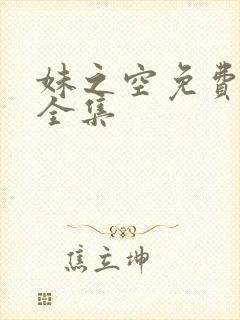 妹之空免費
全集
焦立坤